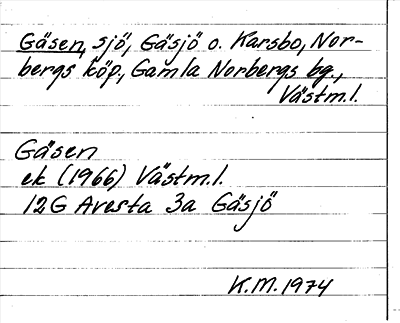 Gäsen, sjö, Gäsjö o. Karsbo, Nor-
bergs köp., Gamla Norbergs bg.,
Västm.l.
Gäsen
ek (1966) Västm.l.
12G Avesta 3a Gäsjö
K.M. 1974